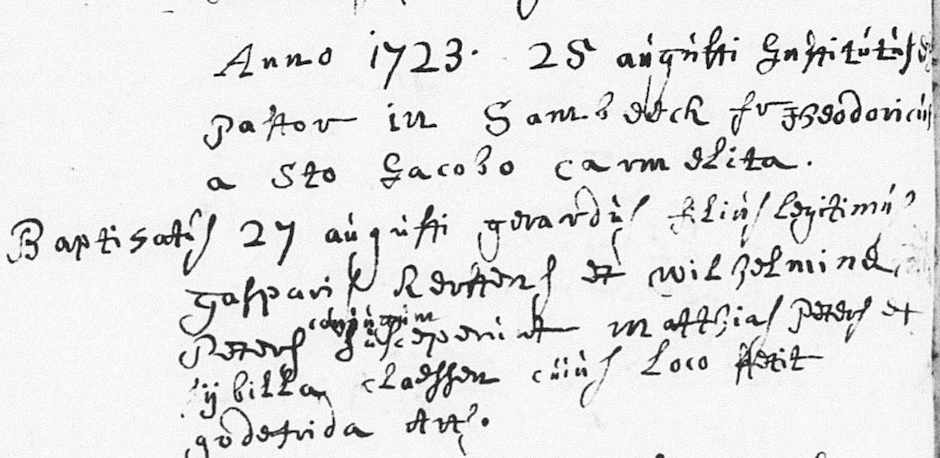 Anno 1723. 25 augusti Institutus est
pastor in Sambeeck fr Theodoricus
a Sto Jacobo carmelita.
Baptisatus 27 augusti gerardus filius legitimus
gasparis Kerstens et wilhelmina
Peters conjugum susceperunt Matthias Peters et
sijbilla claessen cuius loco stetit
godefrida